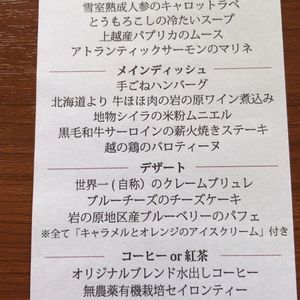 雪室熟成人参のキャロットラペ
とうもろこしの冷たいスープ
上越産パプリカのムース
アトランティックサーモンのマリネ
メインディッシュ
手ごねハンバーグ
北海道より 牛ほほ肉の岩の原ワイン煮込み
地物シイラの米粉ムニエル
黒毛和牛サーロインの薪火焼きステーキ
越の鶏のバロティーヌ
デザート
世界一(自称)のクレームブリュレ
ブルーチーズのチーズケーキ
岩の原地区産ブルーベリーのパフェ
※全て「キャラメルとオレンジのアイスクリーム」付き
コーヒー or 紅茶
オリジナルブレンド水出しコーヒー
無農薬有機栽培セイロンティー